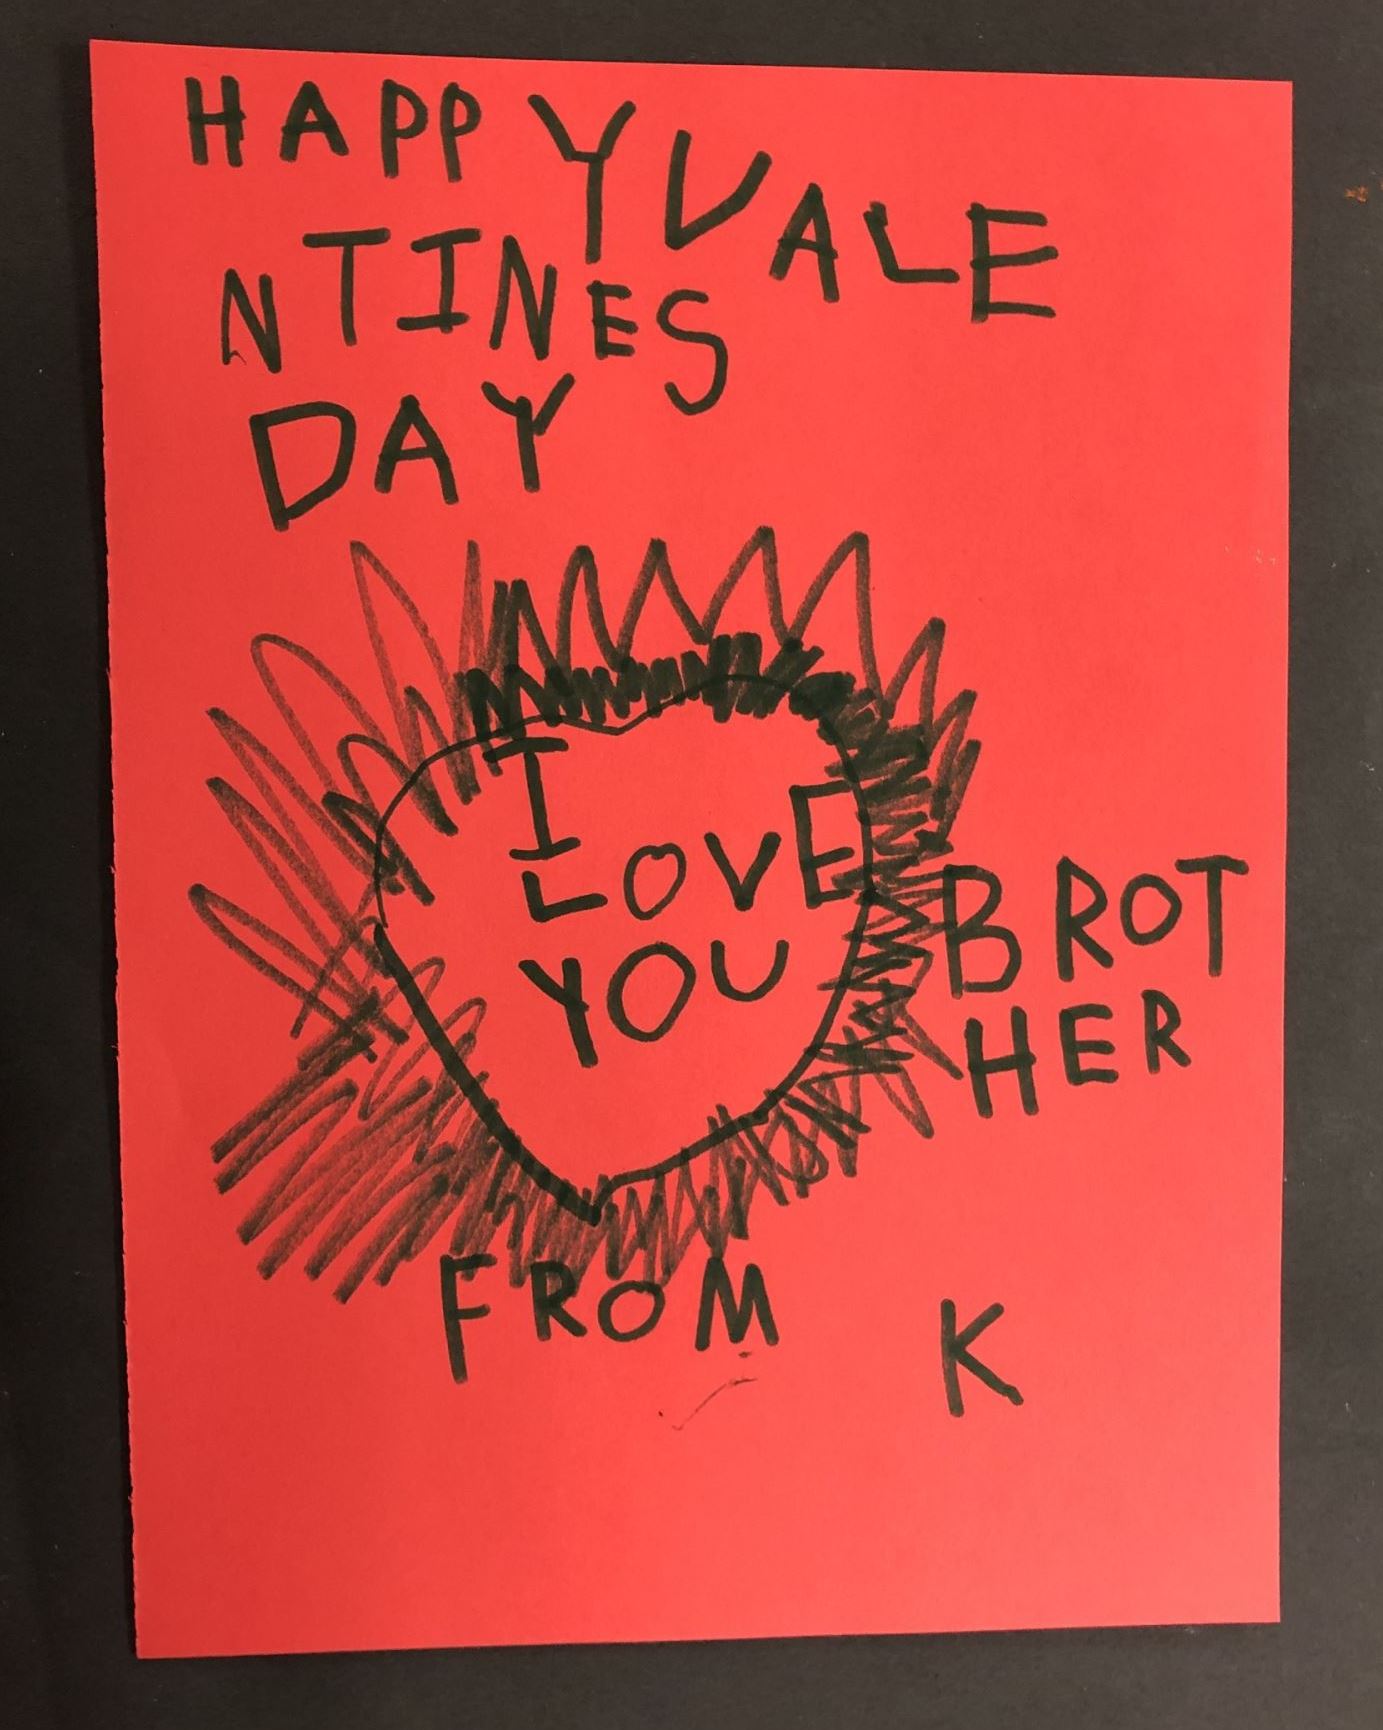 HAPPY VALE
NTINES
DAY
I
LOVE
YOU
BROT
HER
FROM K